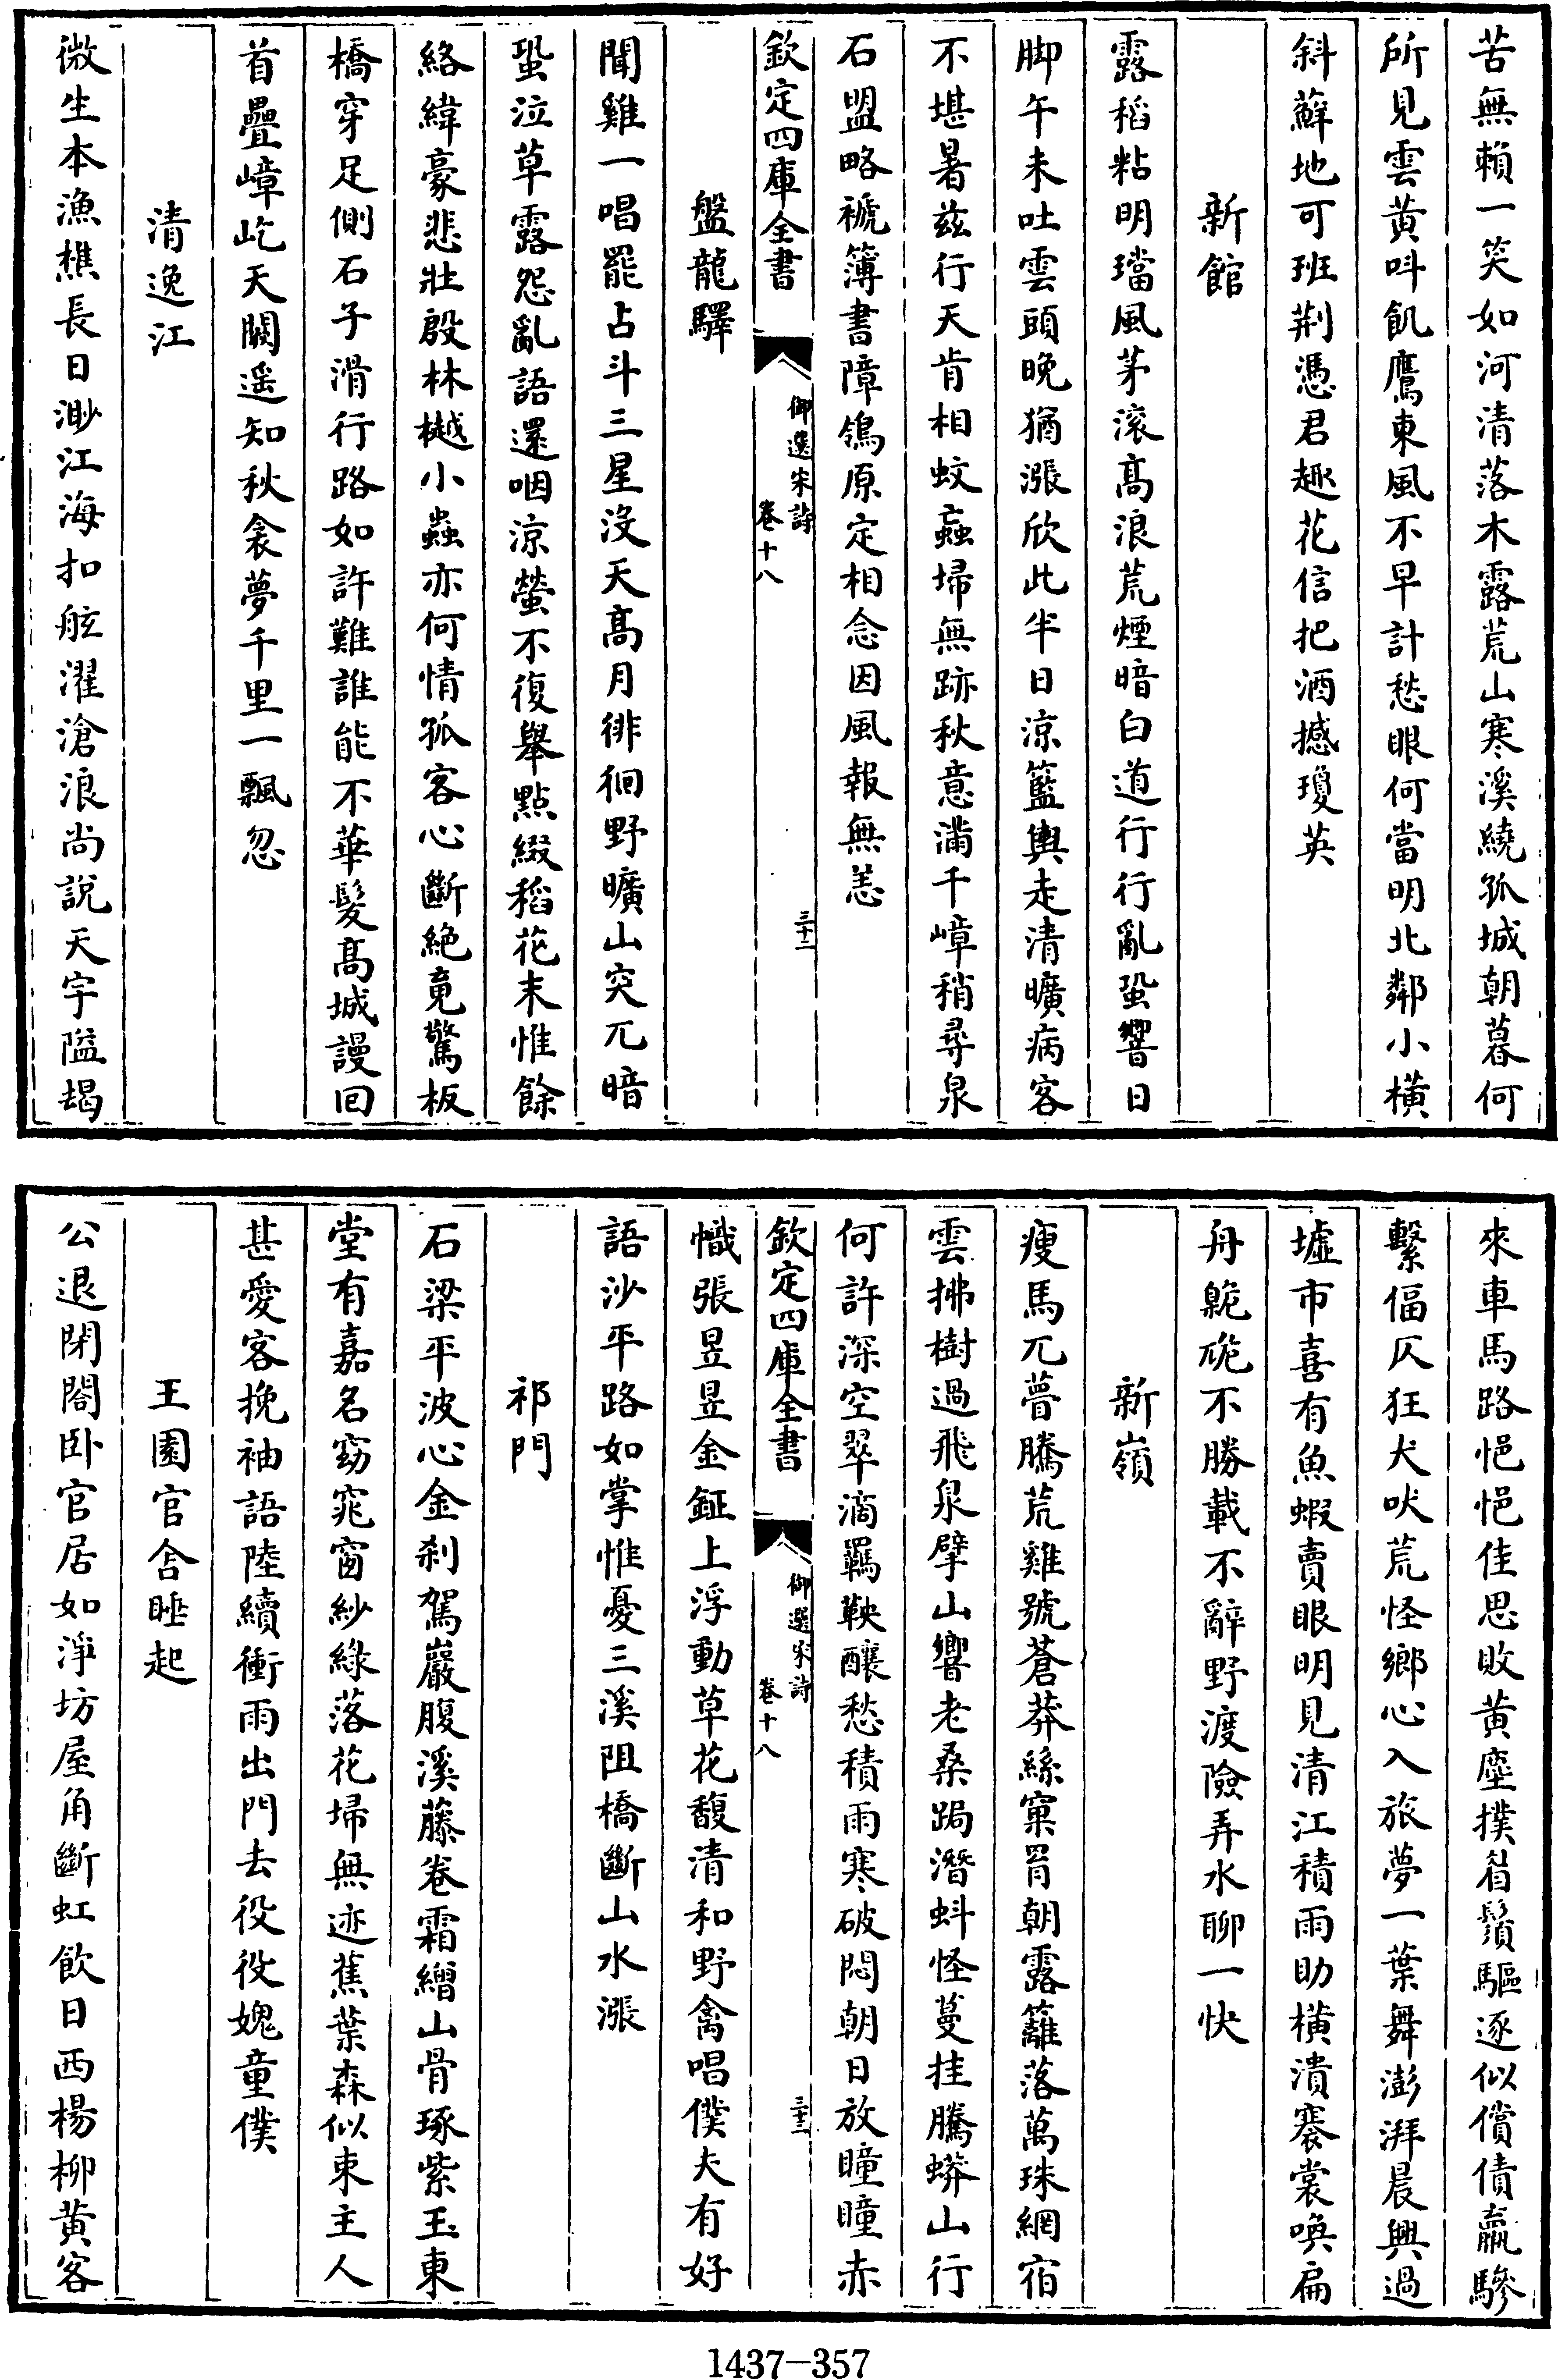 苦無賴一笑如河清落木露荒山寒溪繞孤城朝暮何
所見雲黃呌飢鷹東風不早計愁眼何當明北鄰小橫
斜蘚地可班荆憑君趣花信把酒撼瓊英
新館
露稻粘明璫風茅滚髙浪荒煙暗白道行行亂蛩響日
脚午未吐雲頭晚猶漲欣此半日凉籃輿走清曠病客
不堪暑兹行天肯相蚊蝱埽無跡秋意滿千嶂稍尋泉
石盟略褫簿書障鴒原定相念因風報無恙
欽定四庫全書
御選宋詩
卷十八
三十二
盤龍驛
聞雞一唱罷占斗三星沒天髙月徘徊野曠山突兀暗
蛩泣草露怨亂語還咽凉螢不復舉點綴稻花末惟餘
絡緯豪悲壯殷林樾小蟲亦何情孤客心斷絶竟驚板
橋穿足側石子滑行路如許難誰能不華髮髙城謾回
首疊嶂屹天闕遥知秋衾夢千里一飄忽
清逸江
微生本漁樵長日渺江海扣舷濯滄浪尚說天宇隘朅
來車馬路悒悒佳思敗黃塵撲眉鬚驅逐似償債羸驂
繫偪仄狂犬吠荒怪鄉心入旅夢一葉舞澎湃晨興過
墟市喜有魚蝦賣眼明見清江積雨助橫潰褰裳喚扁
舟臲卼不勝載不辭野渡險弄水聊一快
新嶺
瘦馬兀瞢騰荒雞號蒼莽絲窠胃朝露籬落萬珠網宿
雲拂樹過飛泉擘山響老桑跼潛蚪怪蔓挂騰蟒山行
何許深空翠滴羈鞅釀愁積雨寒破悶朝日放曈曈赤
欽定四庫全書
御選宋詩
卷十八
三十三
幟張昱昱金鉦上浮動草花馥清和野禽唱僕夫有好
語沙平路如掌惟憂三溪阻橋斷山水漲
祁門
石梁平波心金刹駕巖腹溪藤卷霜繒山骨琢紫玉東
堂有嘉名窈窕窗紗緑落花埽無迹蕉葉森似束主人
甚愛客挽袖語陸續衝雨出門去役役媿童僕
王園官舍睡起
公退閉閤卧官居如淨坊屋角斷虹飲日西楊柳黃客
1437-357